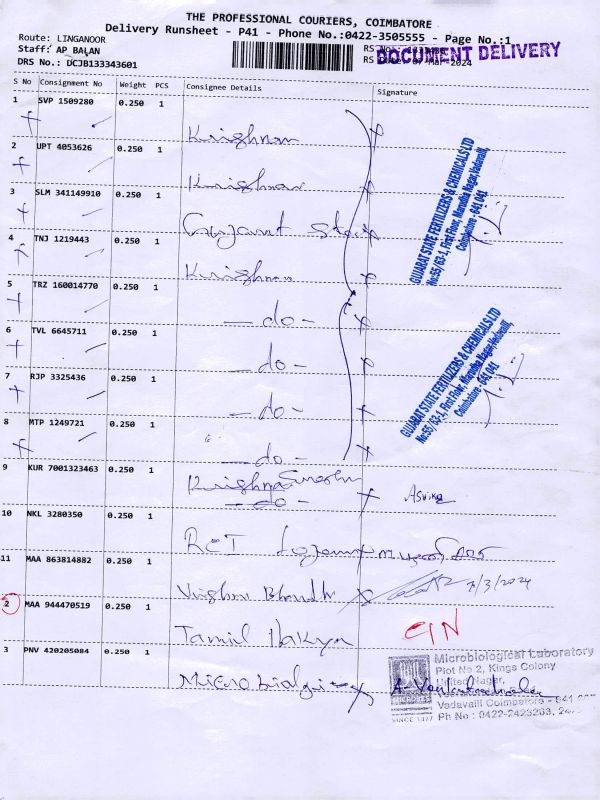 THE PROFESSIONAL COURIERS, COIMBATORE
Delivery Runsheet - P41 - Phone No.:0422-3505555 - Page No.:1
Route: LINGANOOR
Staff: AP BALAN
DRS No.: DCJB133343601
DOCUMENT DELIVERY
S No Consignment No Weight PCS Consignee Details Signature
1 SVP 1509280 0.250 1
Krishnan
2 UPT 4053626 0.250 1
Krishnan
3 SLM 341149910 0.250 1
Gujarat State
4 TNJ 1219443 0.250 1
Krishnan
5 TRZ 160014770 0.250 1
- do -
6 TVL 6645711 0.250 1
- do -
7 RJP 3325436 0.250 1
- do -
8 MTP 1249721 0.250 1
- do -
GUJARAT STATE FERTILIZERS & CHEMICALS LTD
No:55/63-1, First Floor, Marudha Nagar, Vadavalli,
Coimbatore - 641 041
GUJARAT STATE FERTILIZERS & CHEMICALS LTD
No:55/63-1, First Floor, Marudha Nagar, Vadavalli,
Coimbatore - 641 041
9 KUR 7001323463 0.250 1
Krishna
- do -
10 NKL 3280350 0.250 1
RCT
11 MAA 863814882 0.250 1
7/3/2024
2 MAA 944470519 0.250 1
Tamil
C/N
3 PNV 420205084 0.250 1
Microbiological Laboratory
Plot No 2, Kings Colony
United Nagar,
Vadavalli Coimbatore - 641
SINCE 1977 Ph No : 0422-2423203,